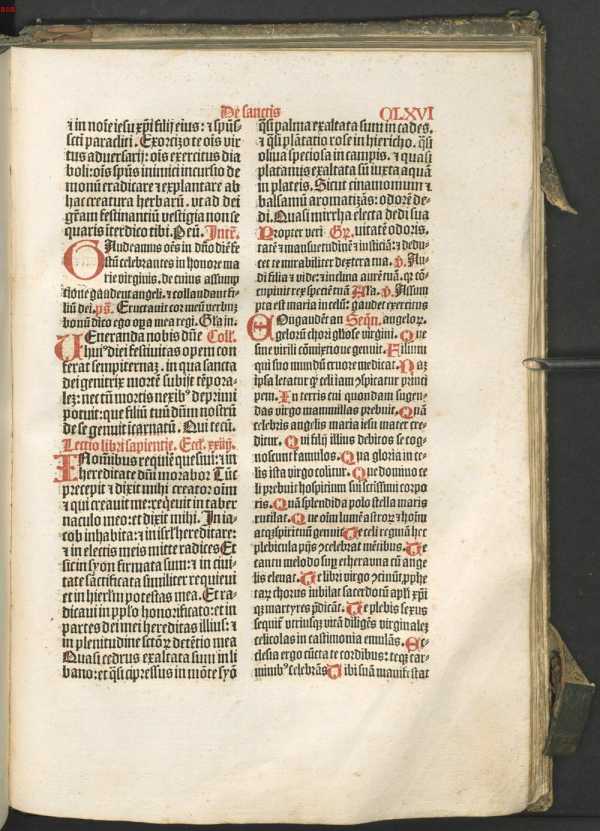 De sanctis CLXVI
⁊ in noīe iesu xp̄i filij eius: ⁊ sp̄us
sc̄ti paracliti. Exorcizo te oīs vir
tus aduersarij: oīs exercitus dia
boli: oīs sp̄us inimici incursio de
monū eradicare ⁊ explantare ab
hac creatura herbarū. vt ad dei
gr̄am festinantiū vestigia non se
quaris īterdico tibi. Per eū. Intr̄.
GAudeamus oēs in dn̄o diē fe
stū celebrantes in honore ma
rie virginis. de cuius assump
tione gaudent angeli. ⁊ collaudant fi-
liū dei. ps̄. Eructauit cor meū verbuꝫ
bonū dico ego oꝑa mea regi. Gl̄a in.
VEneranda nobis dn̄e Coll̄.
huiꝰ diei festiuitas opem con
ferat sempiternaꝫ. in qua sancta
dei genitrix mortē subijt tēpora-
leꝫ: nec tn̄ mortis nexibꝰ deprimi
potuit: que filiū tuū dn̄m nostrū
de se genuit īcarnatū. Qui tecū.
Lectio libri sapientie. Eccl̄. xxiiij.
IN oīnibus requiē quesiui: ⁊ in
hereditate dn̄i morabor Tūc
precepit ⁊ dixit mihi creator oīm
⁊ qui creauit me: reqeuit in taber
naculo meo: et dixit mihi. In ia-
cob inhabita: ⁊ in isrl̄ hereditare:
⁊ in electis meis mitte radices Et
sic in syon firmata sum: ⁊ in ciui
tate sāctificata similiter requieui
et in hierlm̄ potestas mea. Et ra-
dicaui in ppl̄o honorificato: et in
partes dei mei hereditas illius: ⁊
in plenitudine sctōꝝ detētio mea
Quasi cedrus exaltata sum in li
bano: et q̄si cipressus in mōte syō
q̄si palma exaltata sum in cades.
⁊ q̄si plātatio rose in hiericho. q̄si
oliua speciosa in campis. ⁊ quasi
platanus exaltata sū iuxta aquā
in plateis. Sicut cinamomum ⁊
balsamū aromatizās: odorē de-
di. Quasi mirrha electa dedi sua
Propter veri Gr̄. uitatē odoris.
tatē ⁊ mansuetudinē ⁊ iusticiā: ⁊ dedu-
cet te mirabiliter dextera tua. v̄. Au-
di filia ⁊ vide: ⁊ inclina aurē tuā. qr̄ cō-
cupiuit rex speciē tuā Al̄a. v̄. Assum
pta est maria in celū: gaudet exercitus
COngaudēt an Seqn̄t̄. angeloꝝ.
geloꝝ chori gl̄iose virgini. Que
sine virili cōmixtiōe genuit. Filium
qui suo mundū cruore medicat. Naꝫ
ipsa letatur qꝫ celi iam ꝯspicatur princi
pem. In terris cui quondam sugen-
das virgo mammillas prebuit. Quā
celebris angelis maria iesu mater cre-
ditur. Qui filij illius debitos se cog-
noscunt famulos. Qua gloria in ce-
lis ista virgo colitur. Que domino ce
li prebuit hospitium sui sctissimi corpo
ris. Quā splendida polo stella maris
rutilat. Que oīm lumē astroꝝ ⁊ hoīnū
atqꝫ spirituū genuit. Te celi regina hec
plebicula pijs ꝯcelebrat mētibus. Te
cantu melodo suꝑ ethera vna cū ange
lis eleuat. Te libri virgo ꝯcinūt. ꝓphe
taꝝ chorus iubilat sacerdotū apl̄i xp̄i
qꝫ martyres p̄dicāt. Te plebis sexus
sequit̄ vtriusqꝫ vitā diligēs virginaleꝫ
celicolas in castimonia emulās. Ec-
clesia ergo cūcta te cordibus: teqꝫ car-
minibꝰ celebrās Tibi suā manifestat